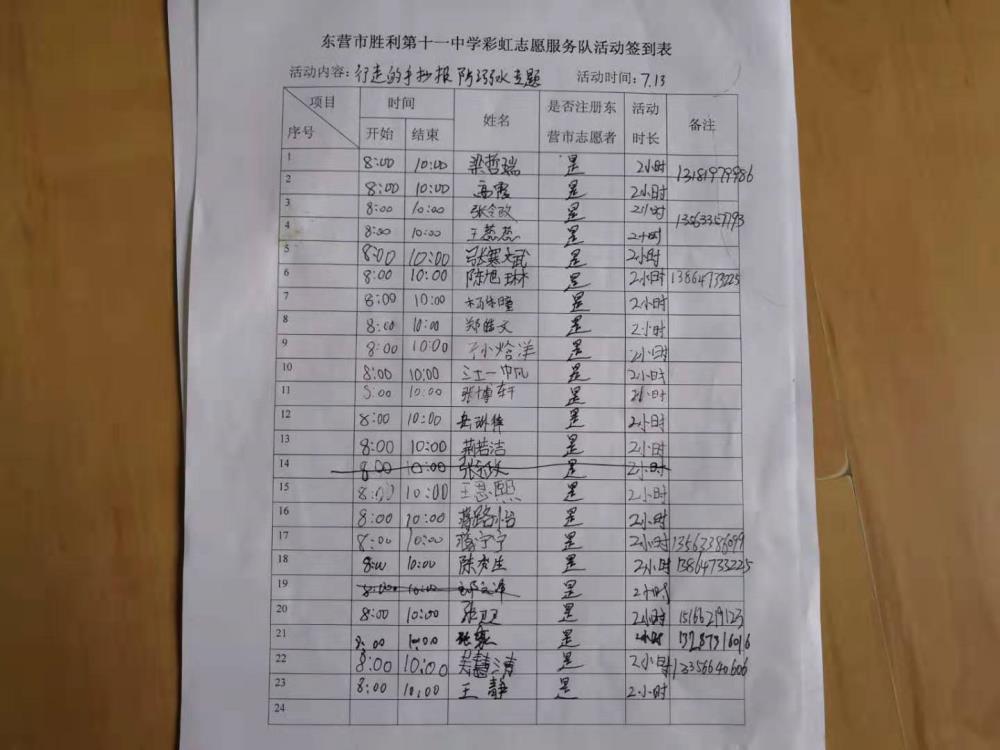 东营市胜利第十一中学彩虹志愿服务队活动签到表
活动内容：行走的手抄报 防溺水主题 活动时间：7.13
项目 序号 时间 开始 结束 姓名 是否注册东营市志愿者 活动时长 备注
1 8:00 10:00 梁哲瑞 是 2小时 13181979986
2 8:00 10:00 高霞 是 2小时
3 8:00 10:00 张含政 是 2小时 13563357793
4 8:00 10:00 王蕊蕊 是 2小时
5 8:00 10:00 是 2小时
6 8:00 10:00 陈旭琳 是 2小时 13864733225
7 8:00 10:00 是 2小时
8 8:00 10:00 郑皓文 是 2小时
9 8:00 10:00 是 2小时
10 8:00 10:00 江一帆 是 2小时
11 8:00 10:00 张博轩 是 2小时
12 8:00 10:00 是 2小时
13 8:00 10:00 荆若洁 是 2小时
14 8:00 10:00 是 2小时
15 8:00 10:00 王思熙 是 2小时
16 8:00 10:00 蒋路怡 是 2小时
17 8:00 10:00 宁宁 是 2小时 13563386099
18 8:00 10:00 陈彦生 是 2小时 13864733225
19 8:00 10:00 是 2小时
20 8:00 10:00 张卫卫 是 2小时 15166219123
21 8:00 10:00 是 2小时 13287316016
22 8:00 10:00 吴慧清 是 2小时 13356640606
23 8:00 10:00 王静 是 2小时
24